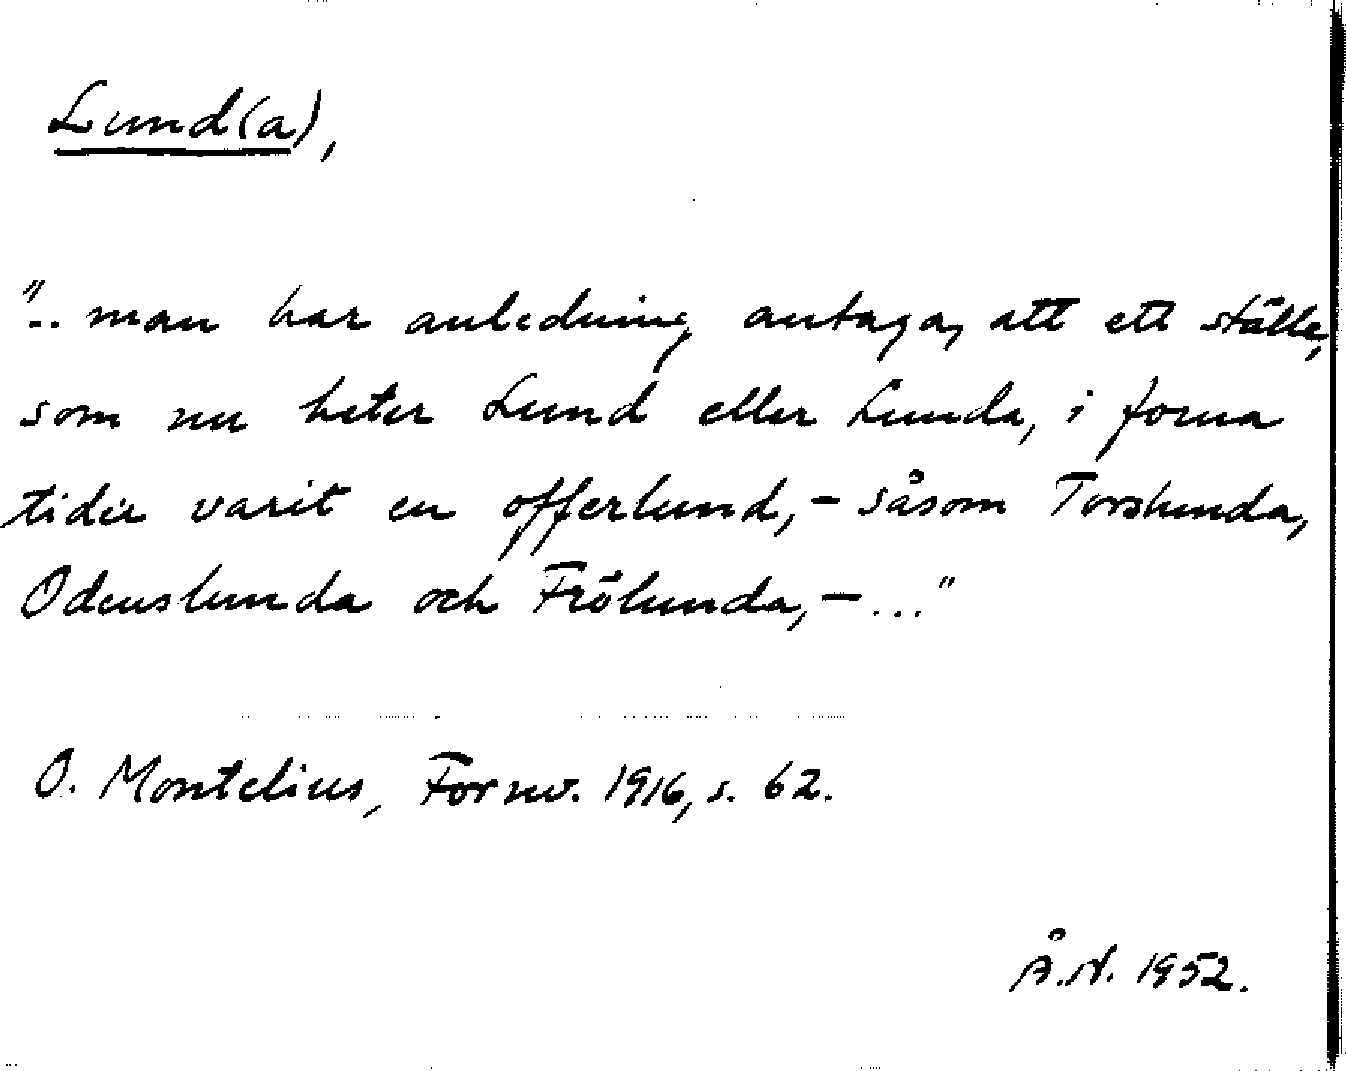 Lund(a),
".. man har anledning antaga, att ett ställe,
som nu heter Lund eller Lunda, i forna
tider varit en offerlund, – såsom Torslunda,
Odenslunda och Frölunda, – ..."
O. Montelius, Fornv. 1916, s. 62.
Å.N. 1952.